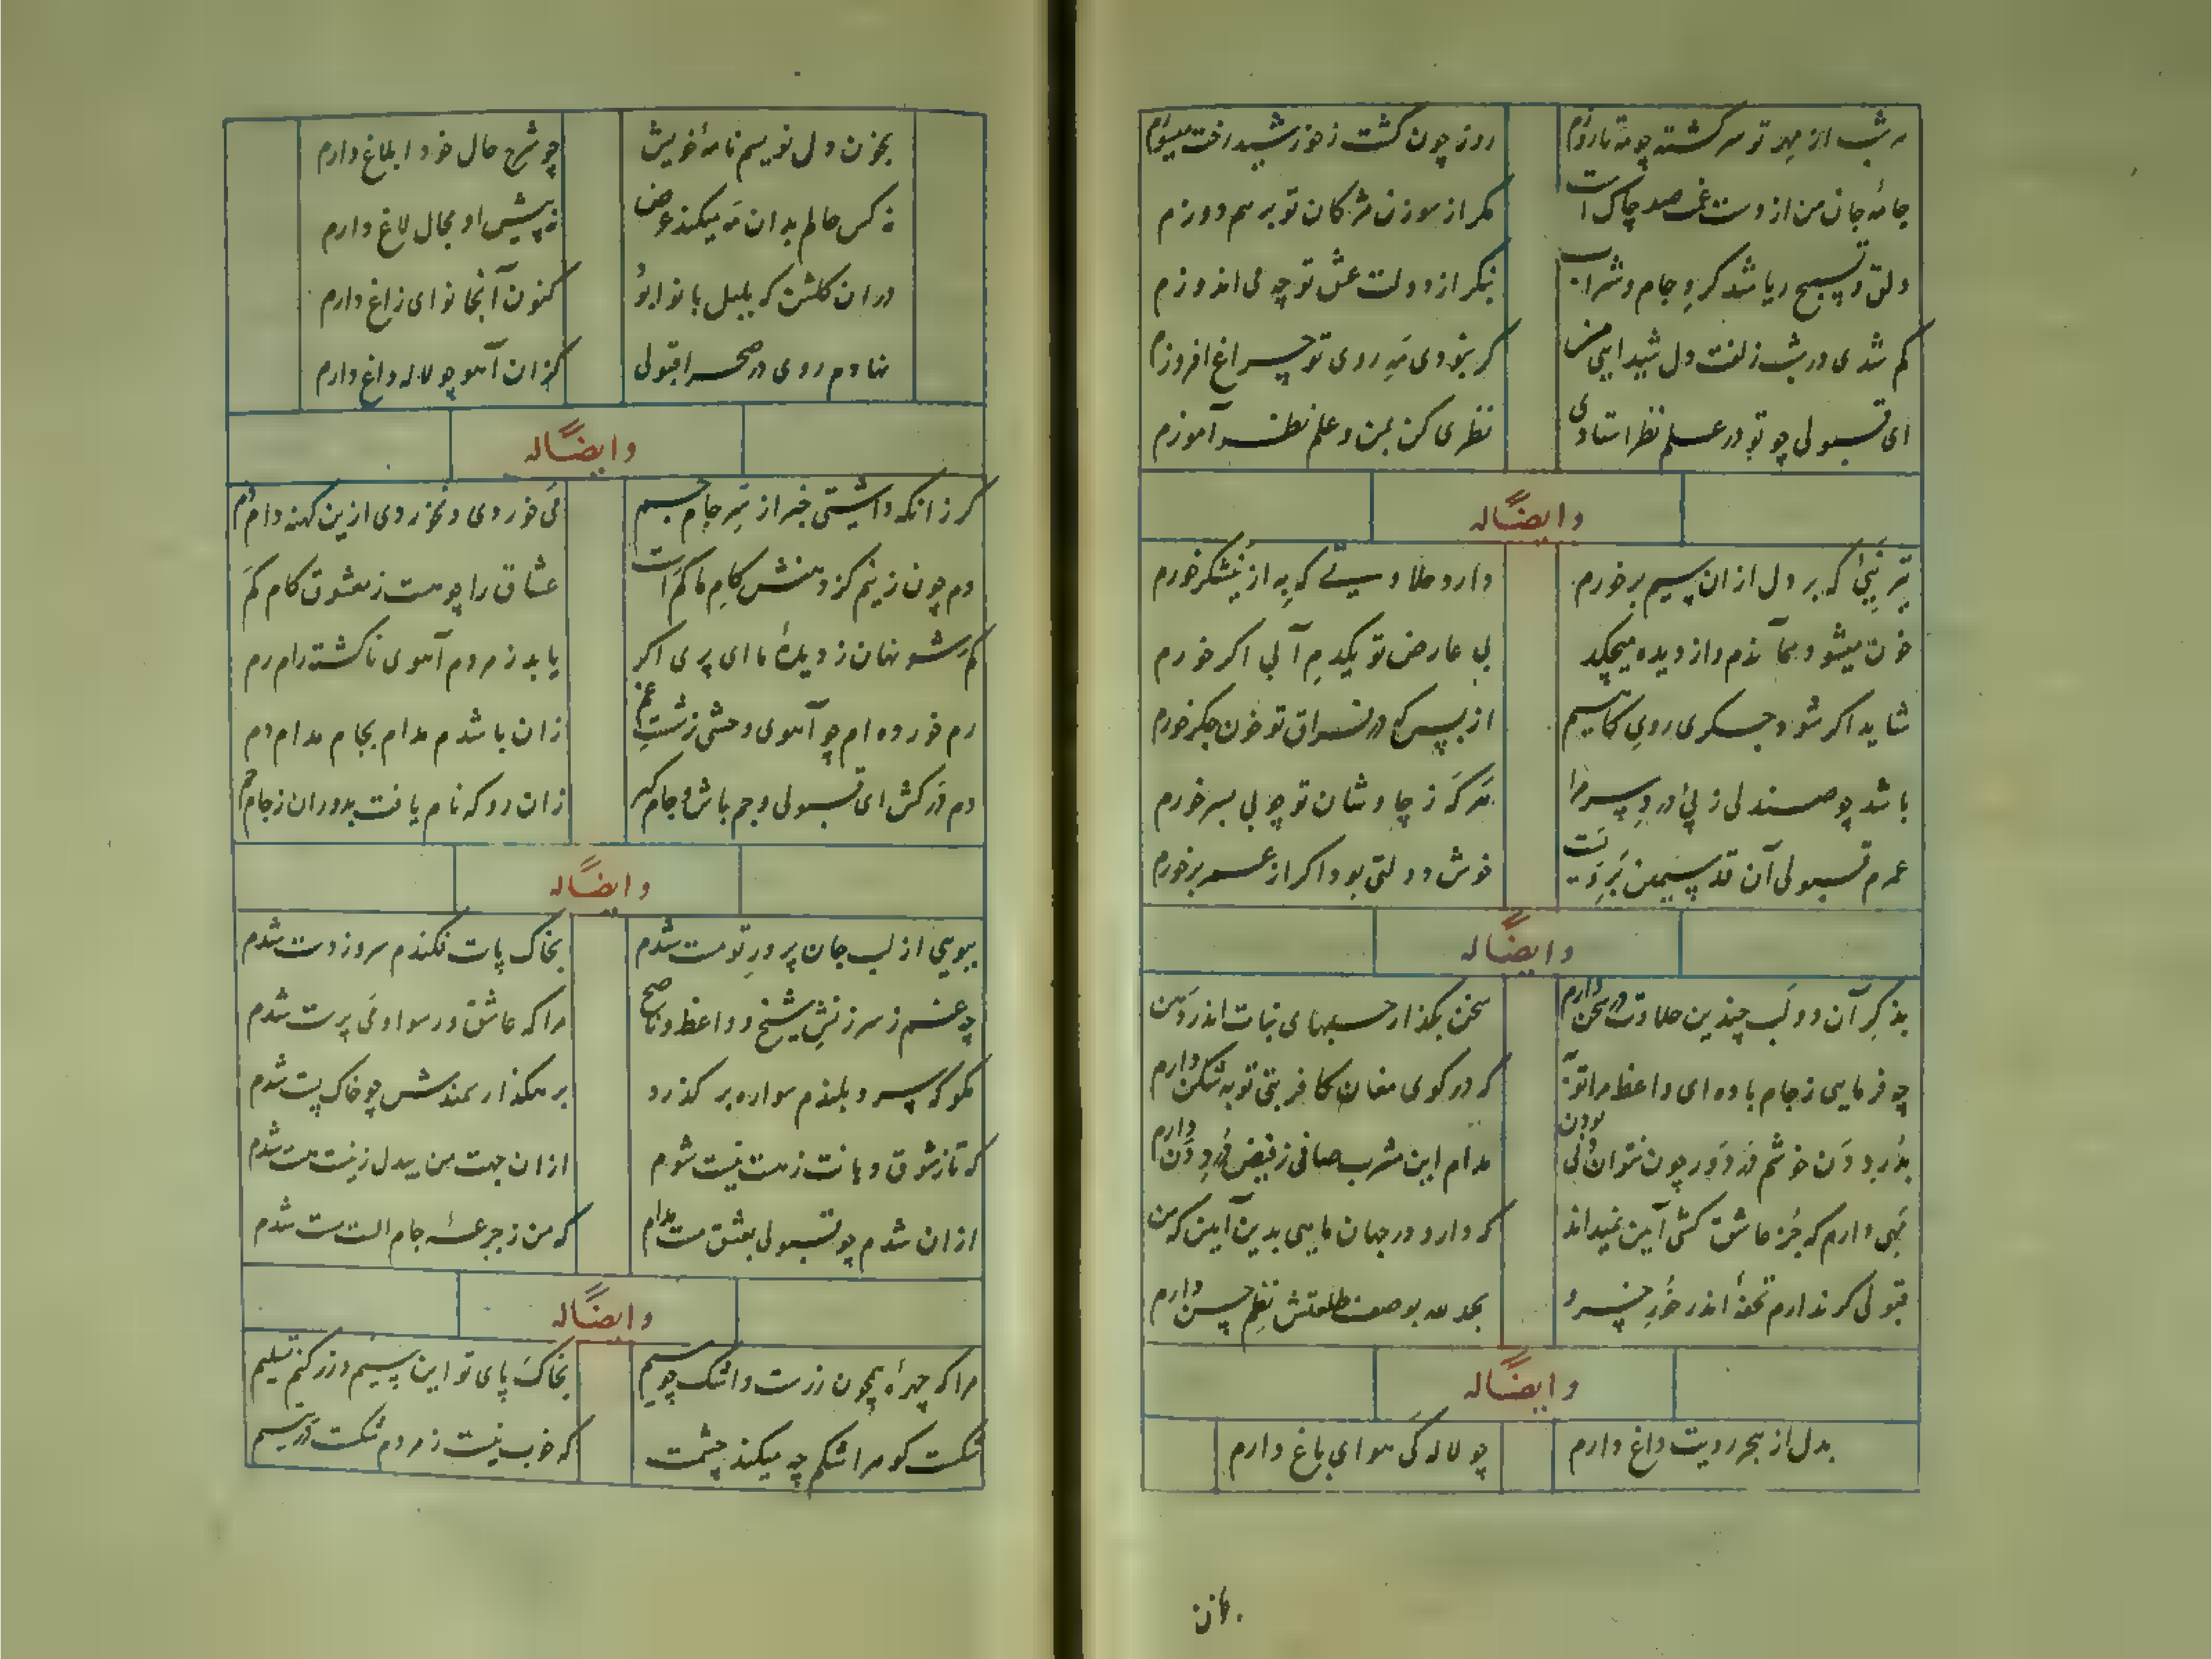 هر شب از مهر تو سرگشته چو مه تا روزم
روز چون گشت ز خورشید رخت میسوزم
جامهٔ جان من از دست غمت صد چاک است
مگر از سوزن مژگان تو بر هم دوزم
دلق و تسبیح ریا شد گرو جام و شراب
بنگر از دولت عشق تو چه می اندوزم
گم شدی در شب زلفت دل شیدایی من
گر نبودی مه روی تو چراغ افروزم
ای قبولی چو تو در علم نظر استادی
نظری کن بمن و علم نظر آموزم
وایضاً له
تیر نیی که بر دل از ان سیم بر خورم
دارد حلاوتی که به از نیشکر خورم
خون میشود همان دم و از دیده میچکد
بی عارض تو یکدم آبی اگر خورم
شاید اگر شود جگری روی کاسیم
از بس که در فراق تو خون جگر خورم
باشد چو صندلی ز پی درد سر مرا
هر که ز چاوشان تو چوبی بسر خورم
عمرم قبولی آن قد سیمین برست
خوش دولتی بود اگر از عمر بر خورم
وایضاً له
بذکر آن دو لب چندین حلاوت در سخن دارم
سخن بگذار حبهای نبات اندر دهن
چه فرمایی ز جام باده ای واعظ مرا توبه
که در کوی مغان کافر بتی توبه شکن دارم
بدرد دن خوشم در دور چون نتوان بودن
مدام این مشرب صافی ز فیض درد دن دارم
مهی دارم که جز عاشق کشی آیین نمیداند
که دارد در جهان ماهی بدین آیین که من
قبولی گر ندارم تحفهٔ اندر خور خسرو
بحمد الله بوصف طلعتش نظم حسن دارم
وایضاً له
بدل از هجر رویت داغ دارم
چو لاله کی هوای باغ دارم
بخون
بخون دل نویسم نامهٔ خویش
چو شرح حال خود ابلاغ دارم
نه کس حالم بدان مه میکند عرض
نه پیش او مجال لاغ دارم
در ان گلشن که بلبل با نوا بود
کنون آنجا نوای زاغ دارم
نهادم روی در صحرا قبولی
کزان آهو چو لاله داغ دارم
وایضاً له
گر زانکه داشتی خبر از سر جام جم
می خوردی و نخوردی ازین کهنه دام دم
دم چون زنیم کز دهنش کام ما کم است
عشاق را چو هست ز معشوق کام کم
کم شو نهان ز دیدهٔ ما ای پری اگر
یابد ز مردم آهوی ناگشته رام رم
رم خورده ام چو آهوی وحشی ز شست غم
زان باشدم مدام بجام مدام دم
دم در کش ای قبولی و جم باش و جام گیر
زان رو که نام یافت بدوران ز جام جم
وایضاً له
ببویی از لب جان پرور تو مست شدم
بخاک پات فکندم سر و ز دست شدم
چه غم ز سرزنش شیخ و واعظ و ناصح
مرا که عاشق و رسوا و می پرست شدم
مگو که سرو بلندم سواره بر گذرد
بر هگذار سمندش چو خاک پست شدم
که تا ز شوق دهانت ز هست نیست شوم
ازان جهت من بیدل ز نیست هست شدم
ازان شدم چو قبولی بعشق مست مدام
که من ز جرعهٔ جام الست مست شدم
وایضاً له
مرا که چهره همچون زرست و اشک چو سیم
بخاک پای تو این سیم و زر کنم تسلیم
شکست گوهر اشکم چه میکند چشمت
که خوب نیست ز مردم شکست در یتیم